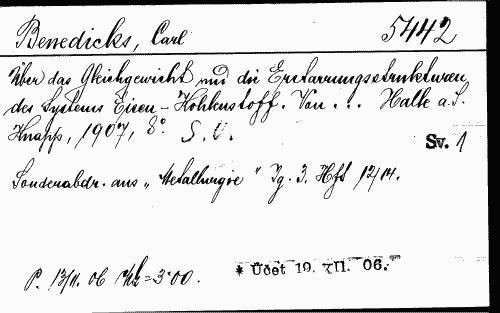 Benedicks, Carl 5442
Über das Gleichgewicht und die Erstarrungsstrukturen
des Systems Eisen-Kohlenstoff. Von ... Halle a.S.
Knapp, 1907, 8° S. U.
Sv. 1
Sonderabdr. aus „Metallurgie" Jg. 3. Hft 12/14.
P. 13/11. 06 Mk = 3.00.
* Účet 19. XII. 06.